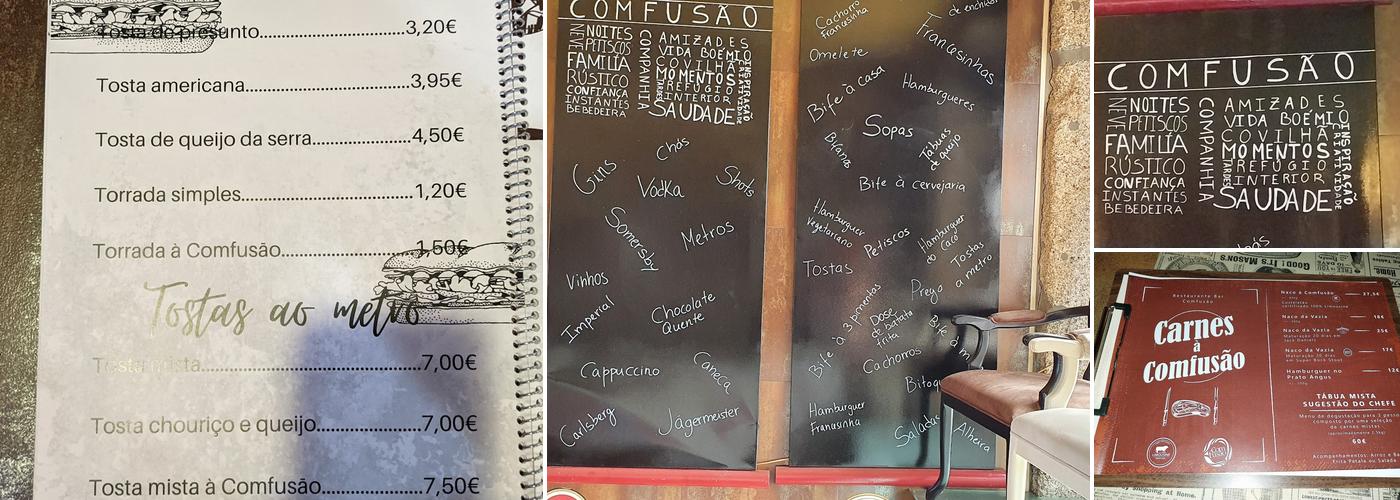 Tosta de presunto..............................3,20€
Tosta americana..................................3,95€
Tosta de queijo da serra....................4,50€
Torrada simples...................................1,20€
Torrada à Comfusão...........................1,50€
Tostas ao metro
Tosta mista............................................7,00€
Tosta chouriço e queijo.....................7,00€
Tosta mista à Comfusão....................7,50€
COMFUSÃO
NEVE
NOITES
PETISCOS
FAMILIA
RÚSTICO
CONFIANÇA
INSTANTES
BEBEDEIRA
COMPANHIA
AMIZADES
VIDA BOÉMIO
COVILHÃ
MOMENTOS
TARDES
REFÚGIO
INTERIOR
SAUDADE
INSPIRAÇÃO
CRIATIVIDADE
Gins
Chás
Vodka
Shots
Somersby
Metros
Vinhos
Imperial
Chocolate
Quente
Cappuccino
Caneca
Carlsberg
Jägermeister
Cachorro
Francesinha
de enchidos
Omelete
Francesinhas
Bife à casa
Hamburgueres
Sopas
Bifanas
Tábuas
de queijo
Bife à cervejaria
Hamburguer
Vegetariano
Petiscos
Hamburguer
do Caco
Tostas
Tostas
a metro
Prego
Bife à 3 pimentas
Dose
de batata
frita
Bife à m
Cachorros
Bitoque
Hamburguer
Francesinha
Saladas
Alheira
COMFUSÃO
NEVE
NOITES
PETISCOS
FAMILIA
RÚSTICO
CONFIANÇA
INSTANTES
BEBEDEIRA
COMPANHIA
AMIZADES
VIDA BOÉMIO
COVILHÃ
MOMENTOS
TARDES
REFÚGIO
INTERIOR
SAUDADE
INSPIRAÇÃO
CRIATIVIDADE
Chás
GOOD! IT'S MASON'S
Restaurante Bar
Comfusão
Carnes
à
Comfusão
Naco à Comfusão 27,5€
certificado 100% Limousine
Naco da Vazia 18€
Naco da Vazia 25€
Maturação 20 dias em
Jack Daniels
Naco da Vazia 17€
Maturação 20 dias
em Super Bock Stout
Hamburguer no 12€
Prato Angus
TÁBUA MISTA
SUGESTÃO DO CHEFE
Menu de degustação para 3 pesso
composto por uma seleção
de carnes mistas
60€
Acompanhamentos: Arroz e Ba
Frita Palala ou Salada
by Shopping at Home.